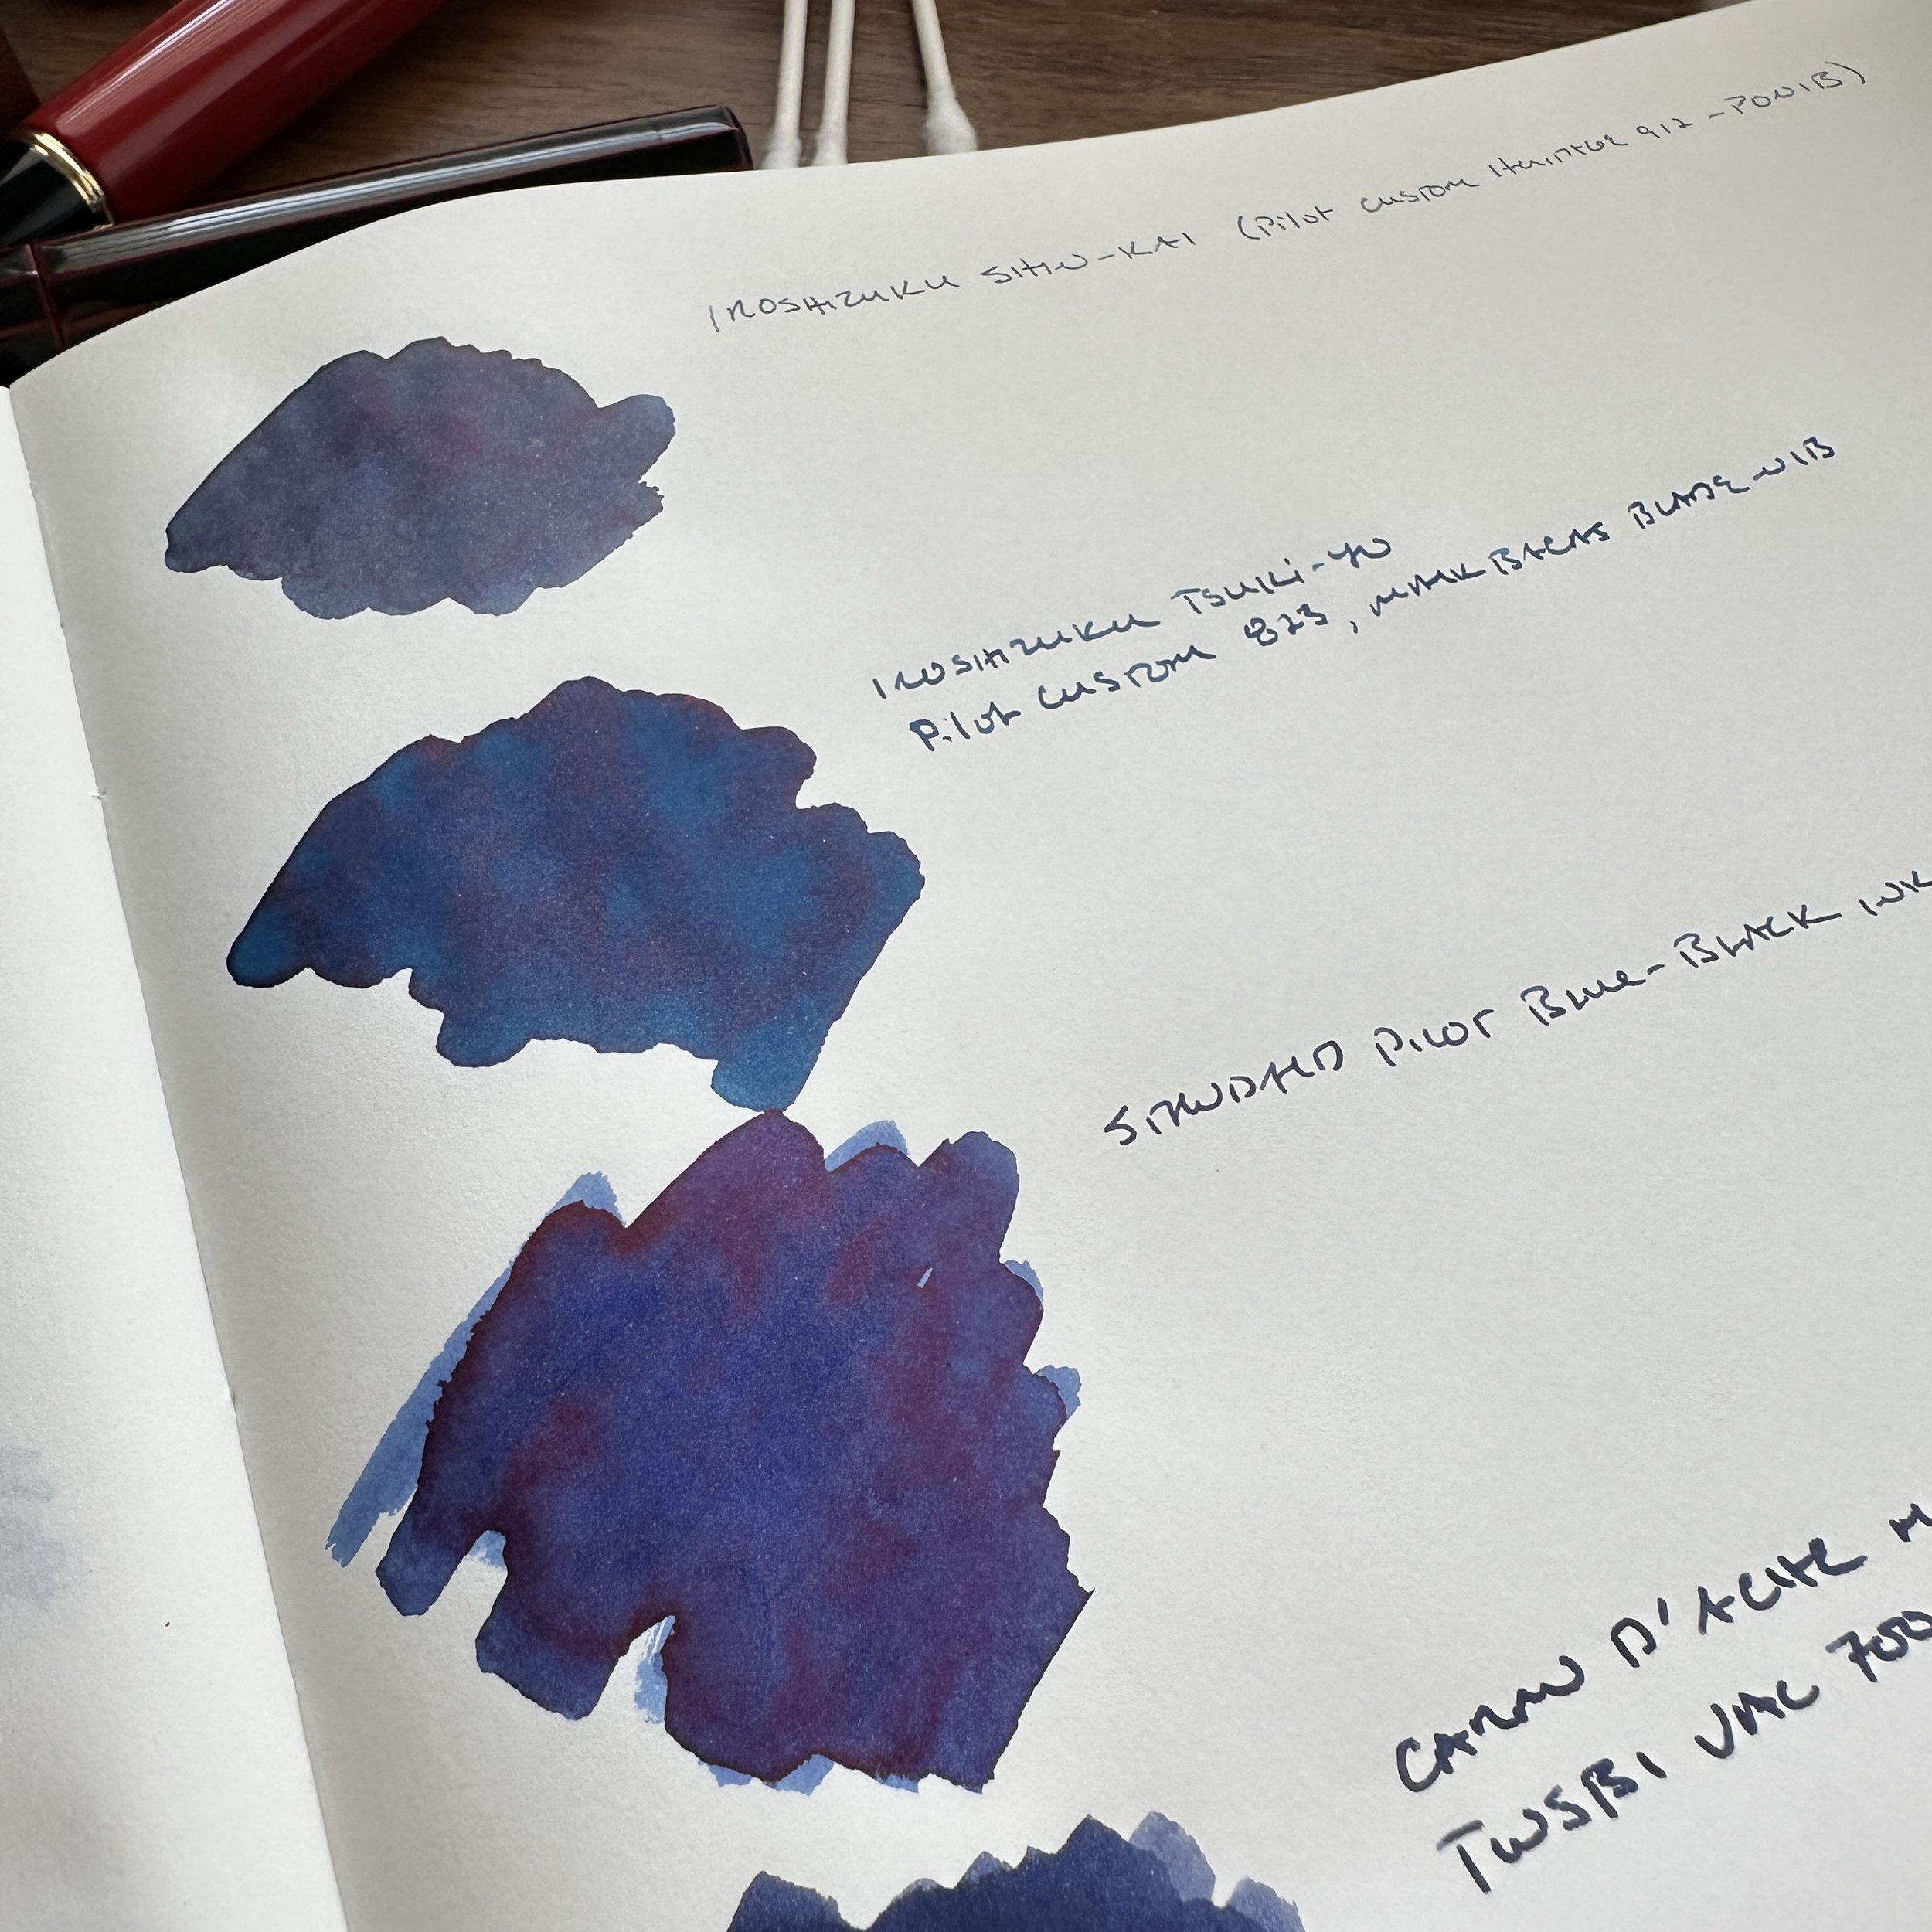 IROSHIZUKU SHIN-KAI (Pilot Custom Heritage 912 - PO NIB)
IROSHIZUKU TSUKI-YO
Pilot Custom 823, MARK BACAS BLADE-NIB
STANDARD PILOT Blue-BLACK INK
CARAN D'ACHE
TWSBI VAC 700